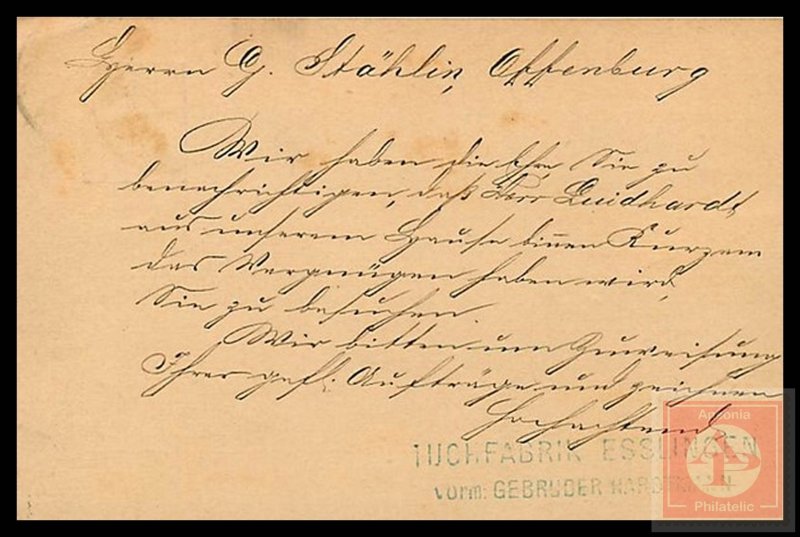 Herrn G. Stählin, Offenburg
Wir haben die Ehre, Sie zu
benachrichtigen, daß Herr Luidhardt
aus unserem Hause binnen Kurzem
das Vergnügen haben wird,
Sie zu besuchen.
Wir bitten um Zuweisung
Ihrer gefl. Aufträge und zeichnen
Hochachtend
TUCHFABRIK ESSLINGEN
vorm: GEBRÜDER
Ansonia
Philatelic